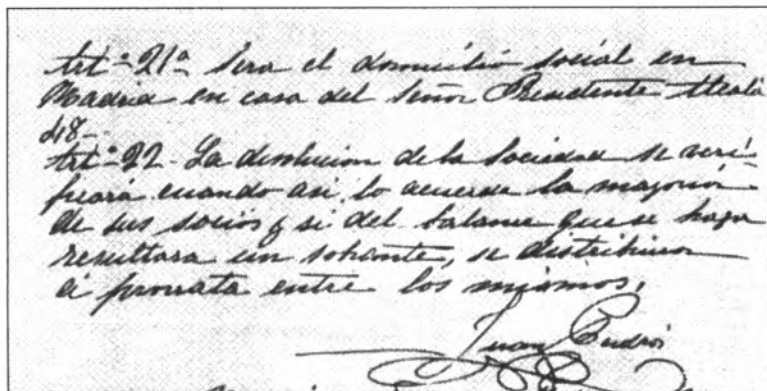 Artº 21ª Sera el domicilio social en
Madrid en casa del Señor Presidente Alcalá
48-
Artº 22- La disolucion de la Sociedad se veri-
ficará cuando asi lo acuerde la mayoria
de sus socios y si del balance que se haga
resultara un sobrante, se distribuira
á prorrata entre los mismos.
Juan